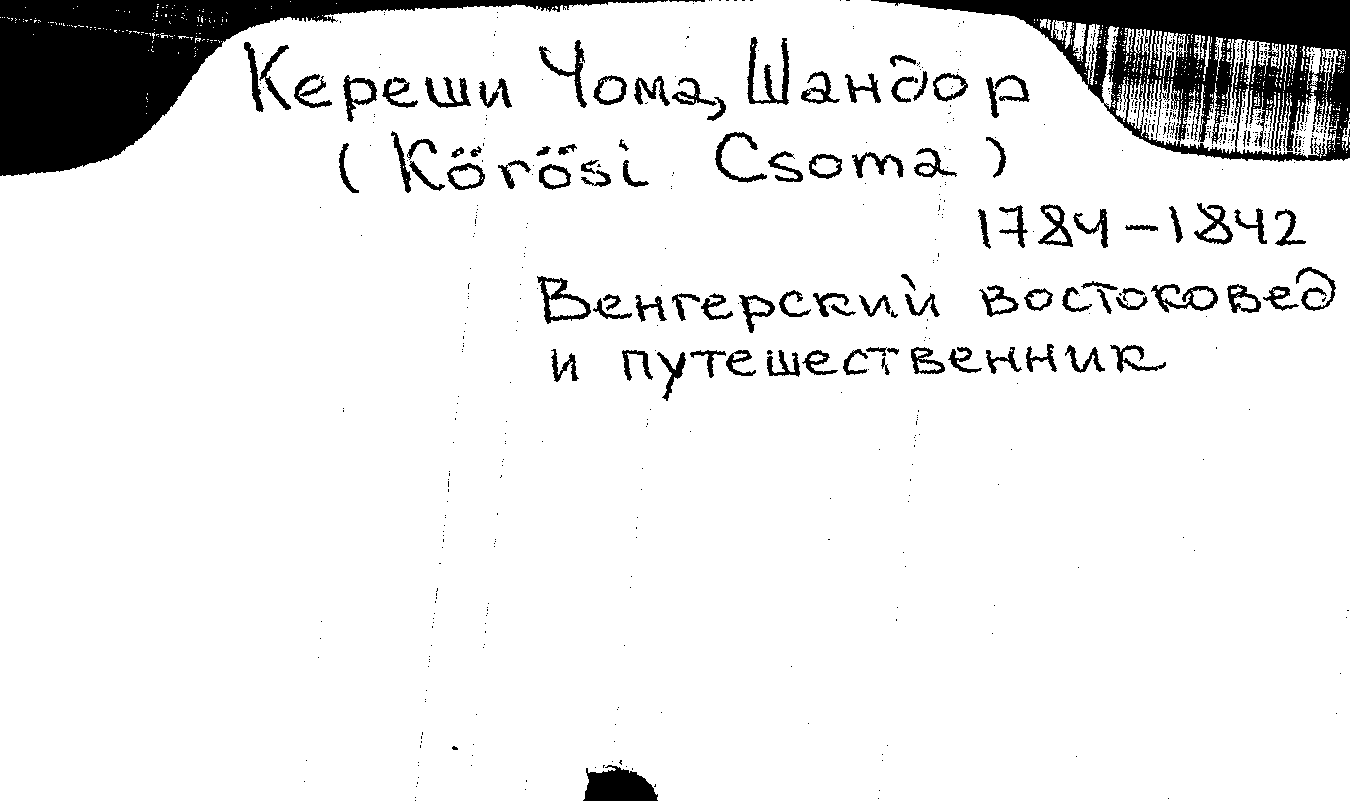 Кереши Чома, Шандор
(Kőrösi Csoma)
1784–1842
Венгерский востоковед
и путешественник